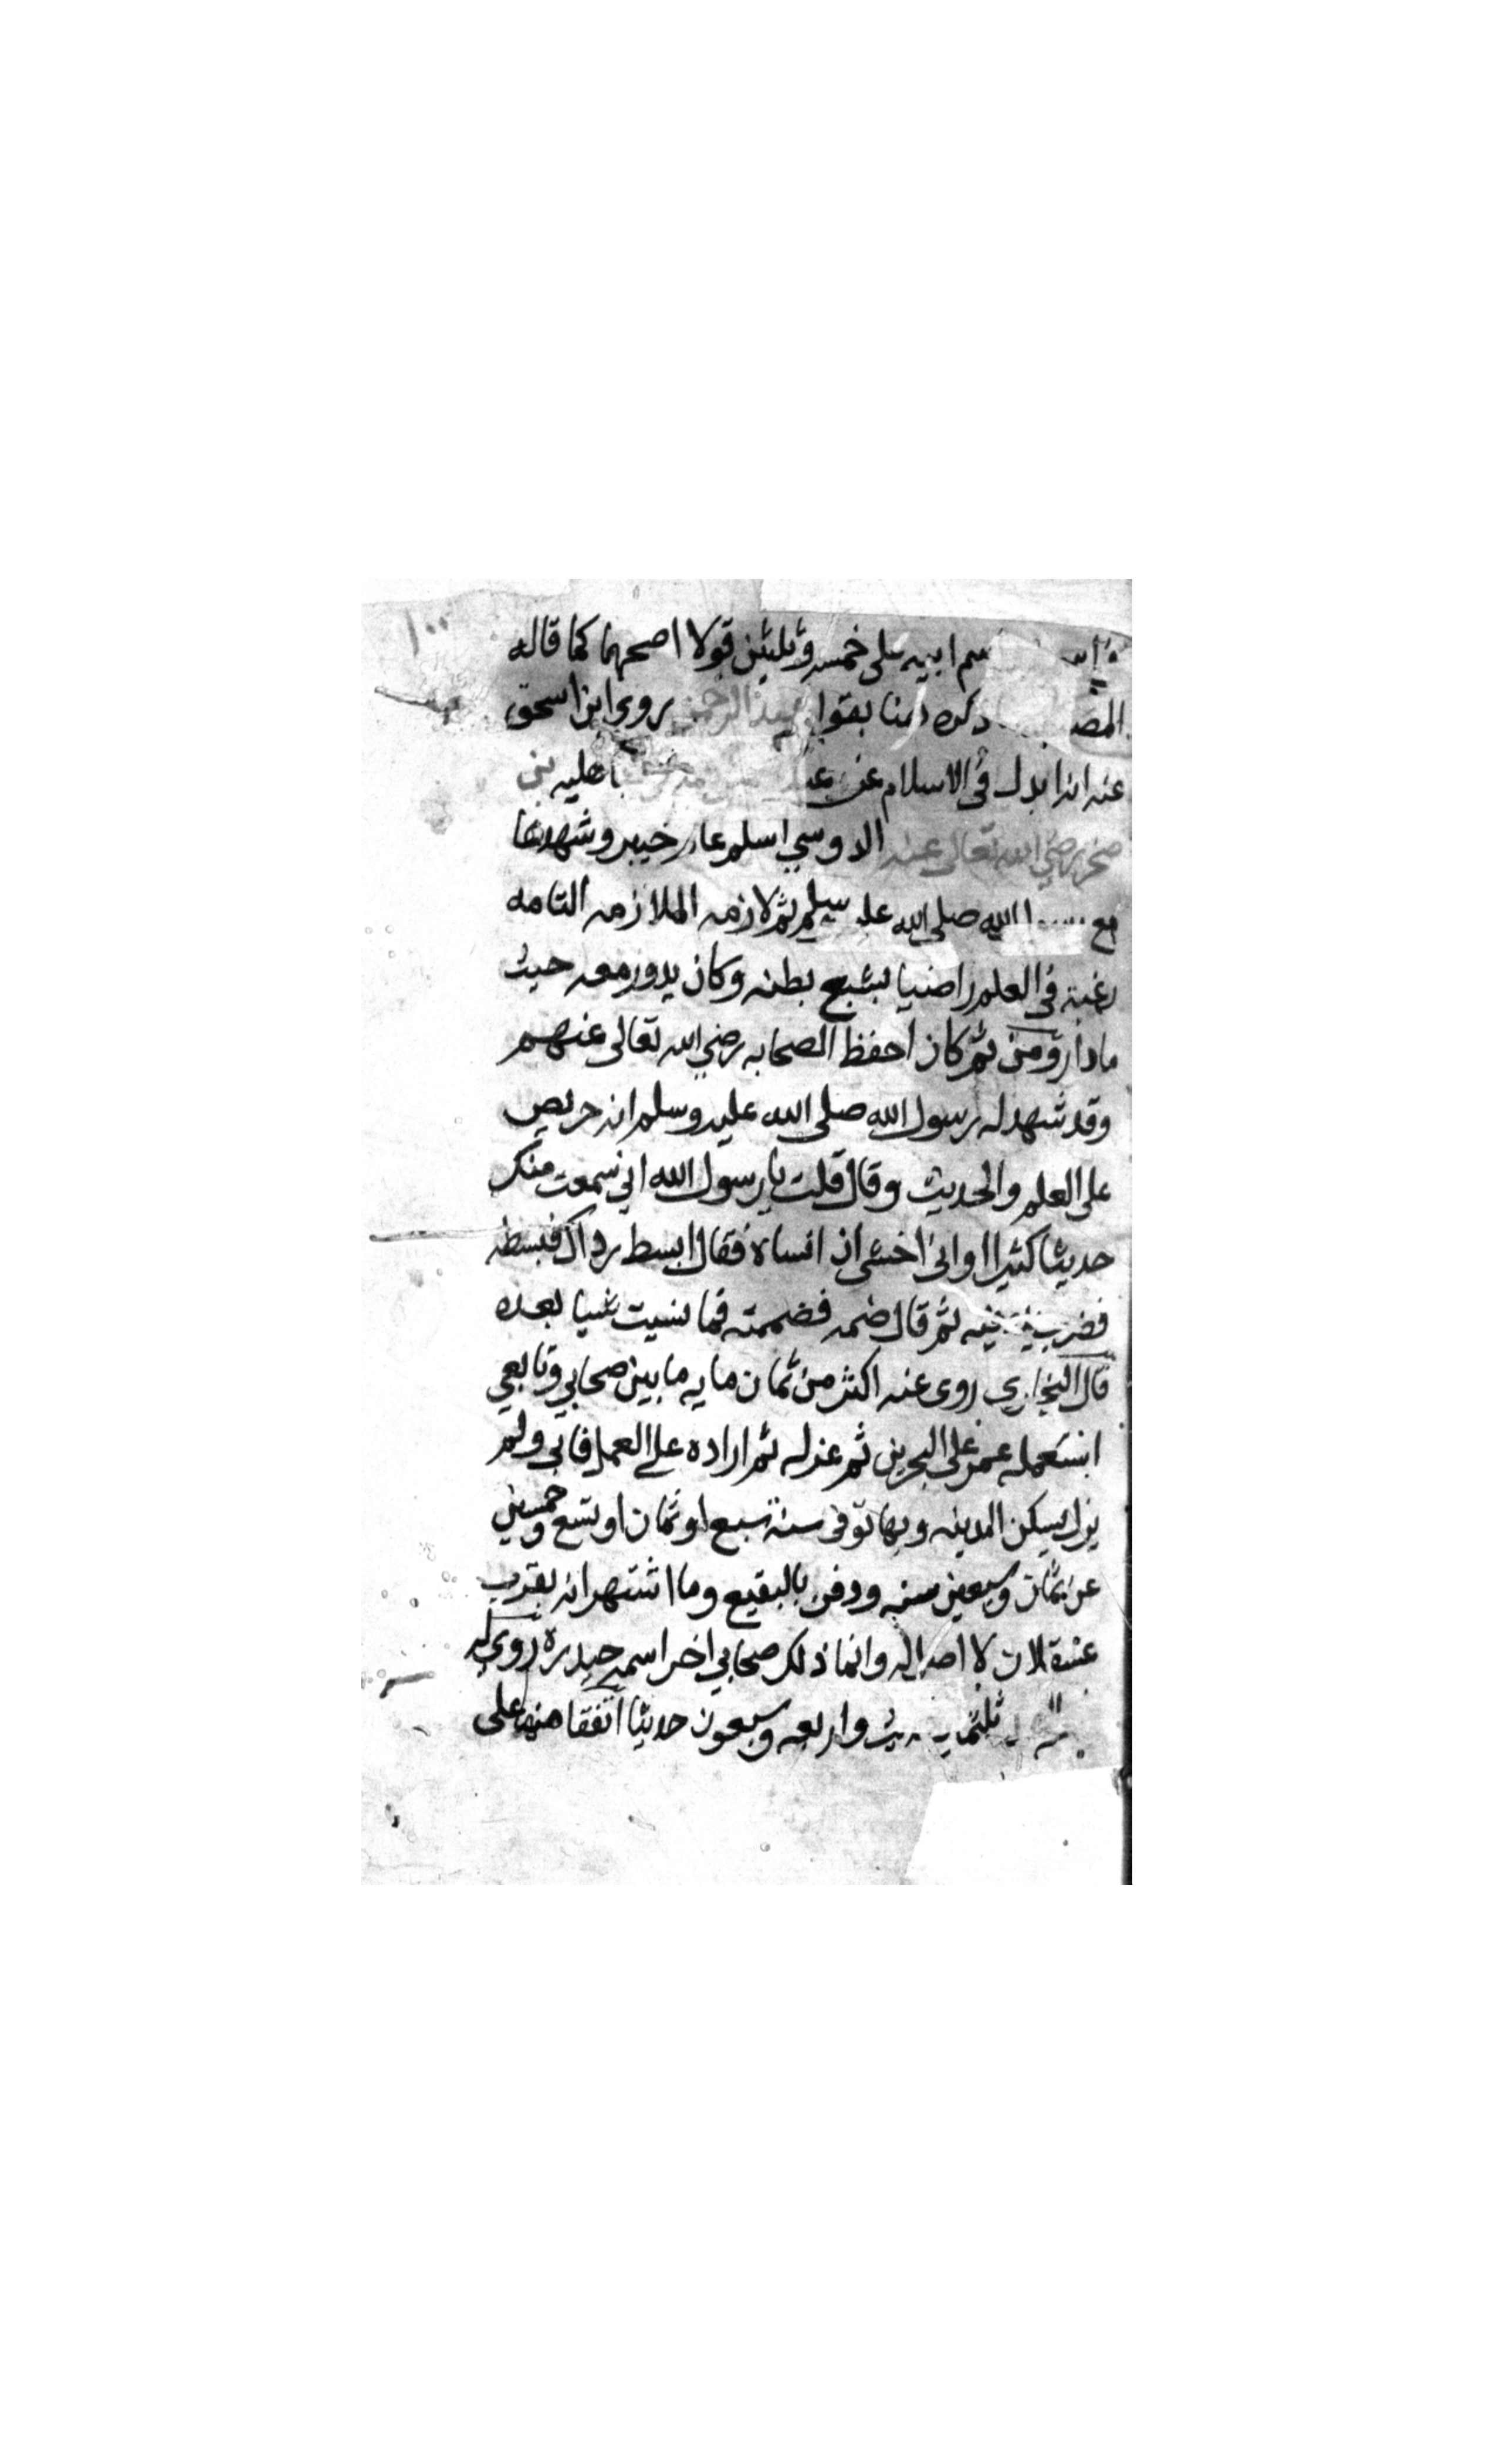 ١٠٠
اسم ابيه على خمسه وثلثين قولا اصحهما كما قاله
ذكره هنا بقوله عبد الرحمن روى ابن اسحق
عنه انه ابدل في الاسلام عن بن
صخر رضي الله تعالى عنه الدوسي اسلم عام خيبر وشهدها
مع الله صلى الله عليه سلم ثم لازمه الملازمه التامه
رغبة في العلم راضيا بشبع بطنه وكان يدور معه حيث
ما دار ومن ثم كان احفظ الصحابه رضي الله تعالى عنهم
وقد شهد له رسول الله صلى الله عليه وسلم انه حريص
على العلم والحديث وقال قلت يا رسول الله اني سمعت منك
حديثا كثيرا واني اخشى ان انساه فقال ابسط رداك فبسطه
فضرب ثم قال ضمه فضممته فما نسيت شيا بعده
قال البخاري روى عنه اكثر من ثمان مايه ما بين صحابي وتابعي
استعمله عمر على البحرين ثم عزله ثم اراده على العمل فابي ولم
يزل يسكن المدينه وبها توفى سنة سبع او ثمان او تسع وخمسين
عن ثمان وسبعين سنه ودفن بالبقيع وما اشتهر انه بقرب
عسقلان لا اصل له وانما ذلك صحابي اخر اسمه حيدره روي له
ثلثمايه واربعه وسبعون حديثا اتفقا منها على